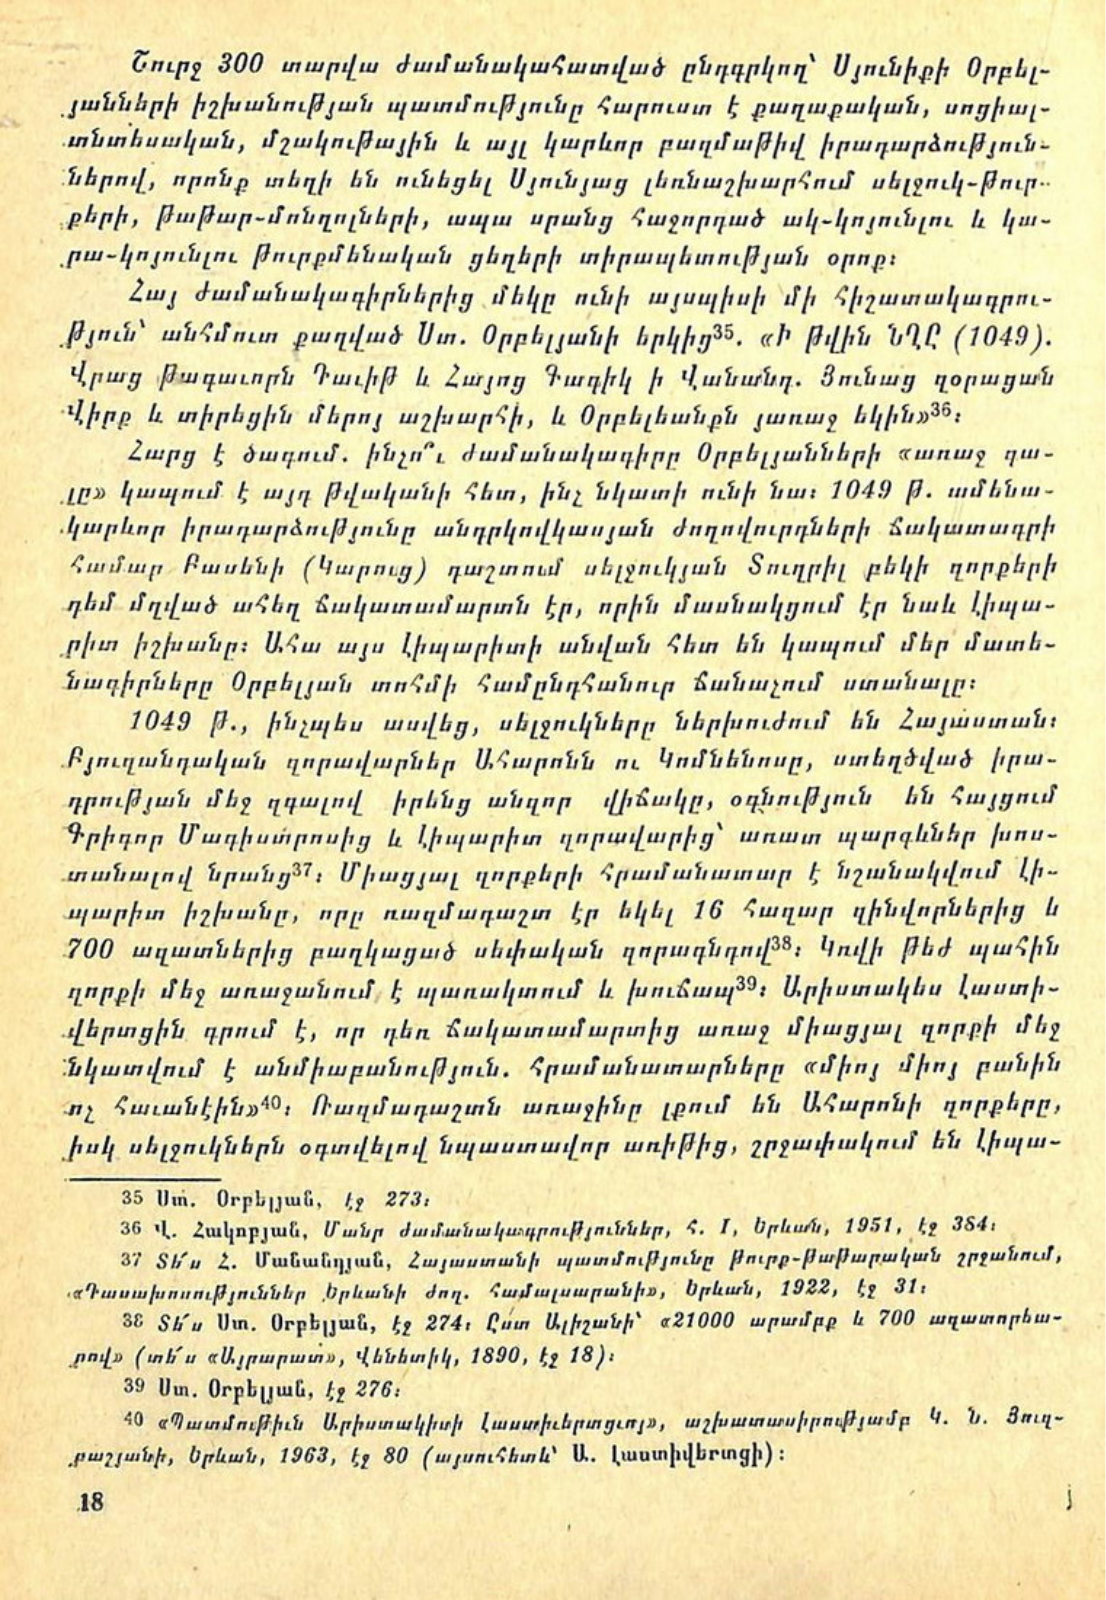 Շուրջ 300 տարվա ժամանակահատված ընդգրկող՝ Սյունիքի Օրբել-
յանների իշխանության պատմությունը հարուստ է քաղաքական, սոցիալ-
տնտեսական, մշակութային և այլ կարևոր բազմաթիվ իրադարձություն-
ներով, որոնք տեղի են ունեցել Սյունյաց լեռնաշխարհում սելջուկ-թուր-
քերի, թաթար-մոնղոլների, ապա սրանց հաջորդած ակ-կոյունլու և կա-
րա-կոյունլու թուրքմենական ցեղերի տիրապետության օրոք։
Հայ ժամանակագիրներից մեկը ունի այսպիսի մի հիշատակագրու-
թյուն՝ անհմուտ քաղված Ստ. Օրբելյանի երկից35. «Ի թվին ՆՂԸ (1049).
Վրաց թագաւորն Դաւիթ և Հայոց Գագիկ ի Վանանդ. Յունաց զօրացան
Վիրք և տիրեցին մերոյ աշխարհի, և Օրբելեանքն յառաջ եկին»36։
Հարց է ծագում. ինչո՞ւ ժամանակագիրը Օրբելյանների «առաջ գա-
լը» կապում է այդ թվականի հետ, ինչ նկատի ունի նա։ 1049 թ. ամենա-
կարևոր իրադարձությունը անդրկովկասյան ժողովուրդների ճակատագրի
համար Բասենի (Կարուց) դաշտում սելջուկյան Տուղրիլ բեկի զորքերի
դեմ մղված ահեղ ճակատամարտն էր, որին մասնակցում էր նաև Լիպա-
րիտ իշխանը։ Ահա այս Լիպարիտի անվան հետ են կապում մեր մատե-
նագիրները Օրբելյան տոհմի համընդհանուր ճանաչում ստանալը։
1049 թ., ինչպես ասվեց, սելջուկները ներխուժում են Հայաստան։
Բյուզանդական զորավարներ Ահարոնն ու Կոմնենոսը, ստեղծված իրա-
դրության մեջ զգալով իրենց անզոր վիճակը, օգնություն են հայցում
Գրիգոր Մագիստրոսից և Լիպարիտ զորավարից՝ առատ պարգևներ խոս-
տանալով նրանց37։ Միացյալ զորքերի հրամանատար է նշանակվում Լի-
պարիտ իշխանը, որը ռազմադաշտ էր եկել 16 հազար զինվորներից և
700 ազատներից բաղկացած սեփական զորագնդով38։ Կռվի թեժ պահին
զորքի մեջ առաջանում է պառակտում և խուճապ39։ Արիստակես Լաստի-
վերտցին գրում է, որ դեռ ճակատամարտից առաջ միացյալ զորքի մեջ
նկատվում է անմիաբանություն. հրամանատարները «միոյ միոյ բանին
ոչ հաւանէին»40։ Ռազմադաշտն առաջինը լքում են Ահարոնի զորքերը,
իսկ սելջուկներն օգտվելով նպաստավոր առիթից, շրջափակում են Լիպա-
35 Ստ. Օրբելյան, էջ 273։
36 Վ. Հակոբյան, Մանր ժամանակագրություններ, հ. I, Երևան, 1951, էջ 384։
37 Տե՛ս Հ. Մանանդյան, Հայաստանի պատմությունը թուրք-թաթարական շրջանում,
«Դասախոսություններ Երևանի ժող. համալսարանի», Երևան, 1922, էջ 31։
38 Տե՛ս Ստ. Օրբելյան, էջ 274։ Ըստ Ալիշանի՝ «21000 արամբք և 700 ազատորեա-
րով» (տե՛ս «Այրարատ», Վենետիկ, 1890, էջ 18)։
39 Ստ. Օրբելյան, էջ 276։
40 «Պատմութիւն Արիստակիսի Լաստիւերտցւոյ», աշխատասիրությամբ Կ. Ն. Յուզ-
բաշյանի, Երևան, 1963, էջ 80 (այսուհետև՝ Ա. Լաստիվերտցի)։
18